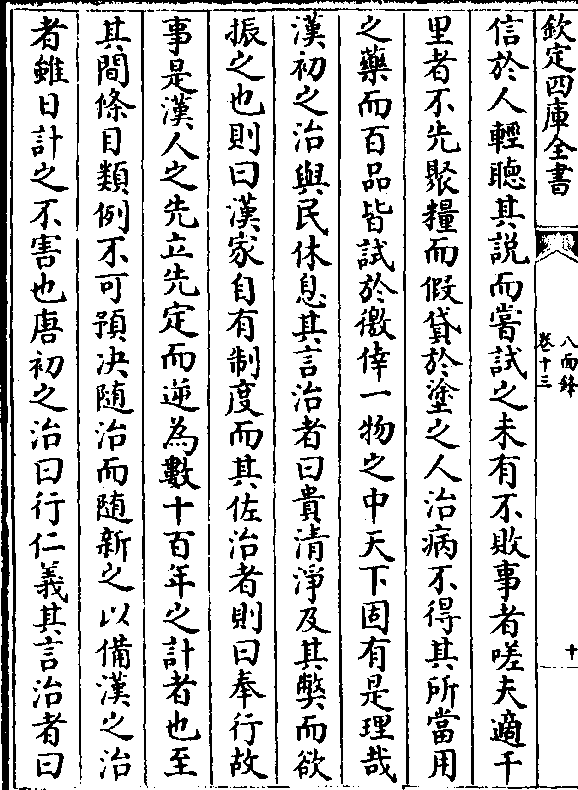 欽定四庫全書
八面鋒
卷十三
十
信於人輕聽其説而嘗試之未有不敗事者嗟夫適千
里者不先聚糧而假貸於塗之人治病不得其所當用
之藥而百品皆試於徼倖一物之中天下固有是理哉
漢初之治與民休息其言治者曰貴清淨及其弊而欲
振之也則曰漢家自有制度而其佐治者則曰奉行故
事是漢人之先立先定而逆為數十百年之計者也至
其間條目類例不可預决随治而随新之以備漢之治
者雖日計之不害也唐初之治曰行仁義其言治者曰